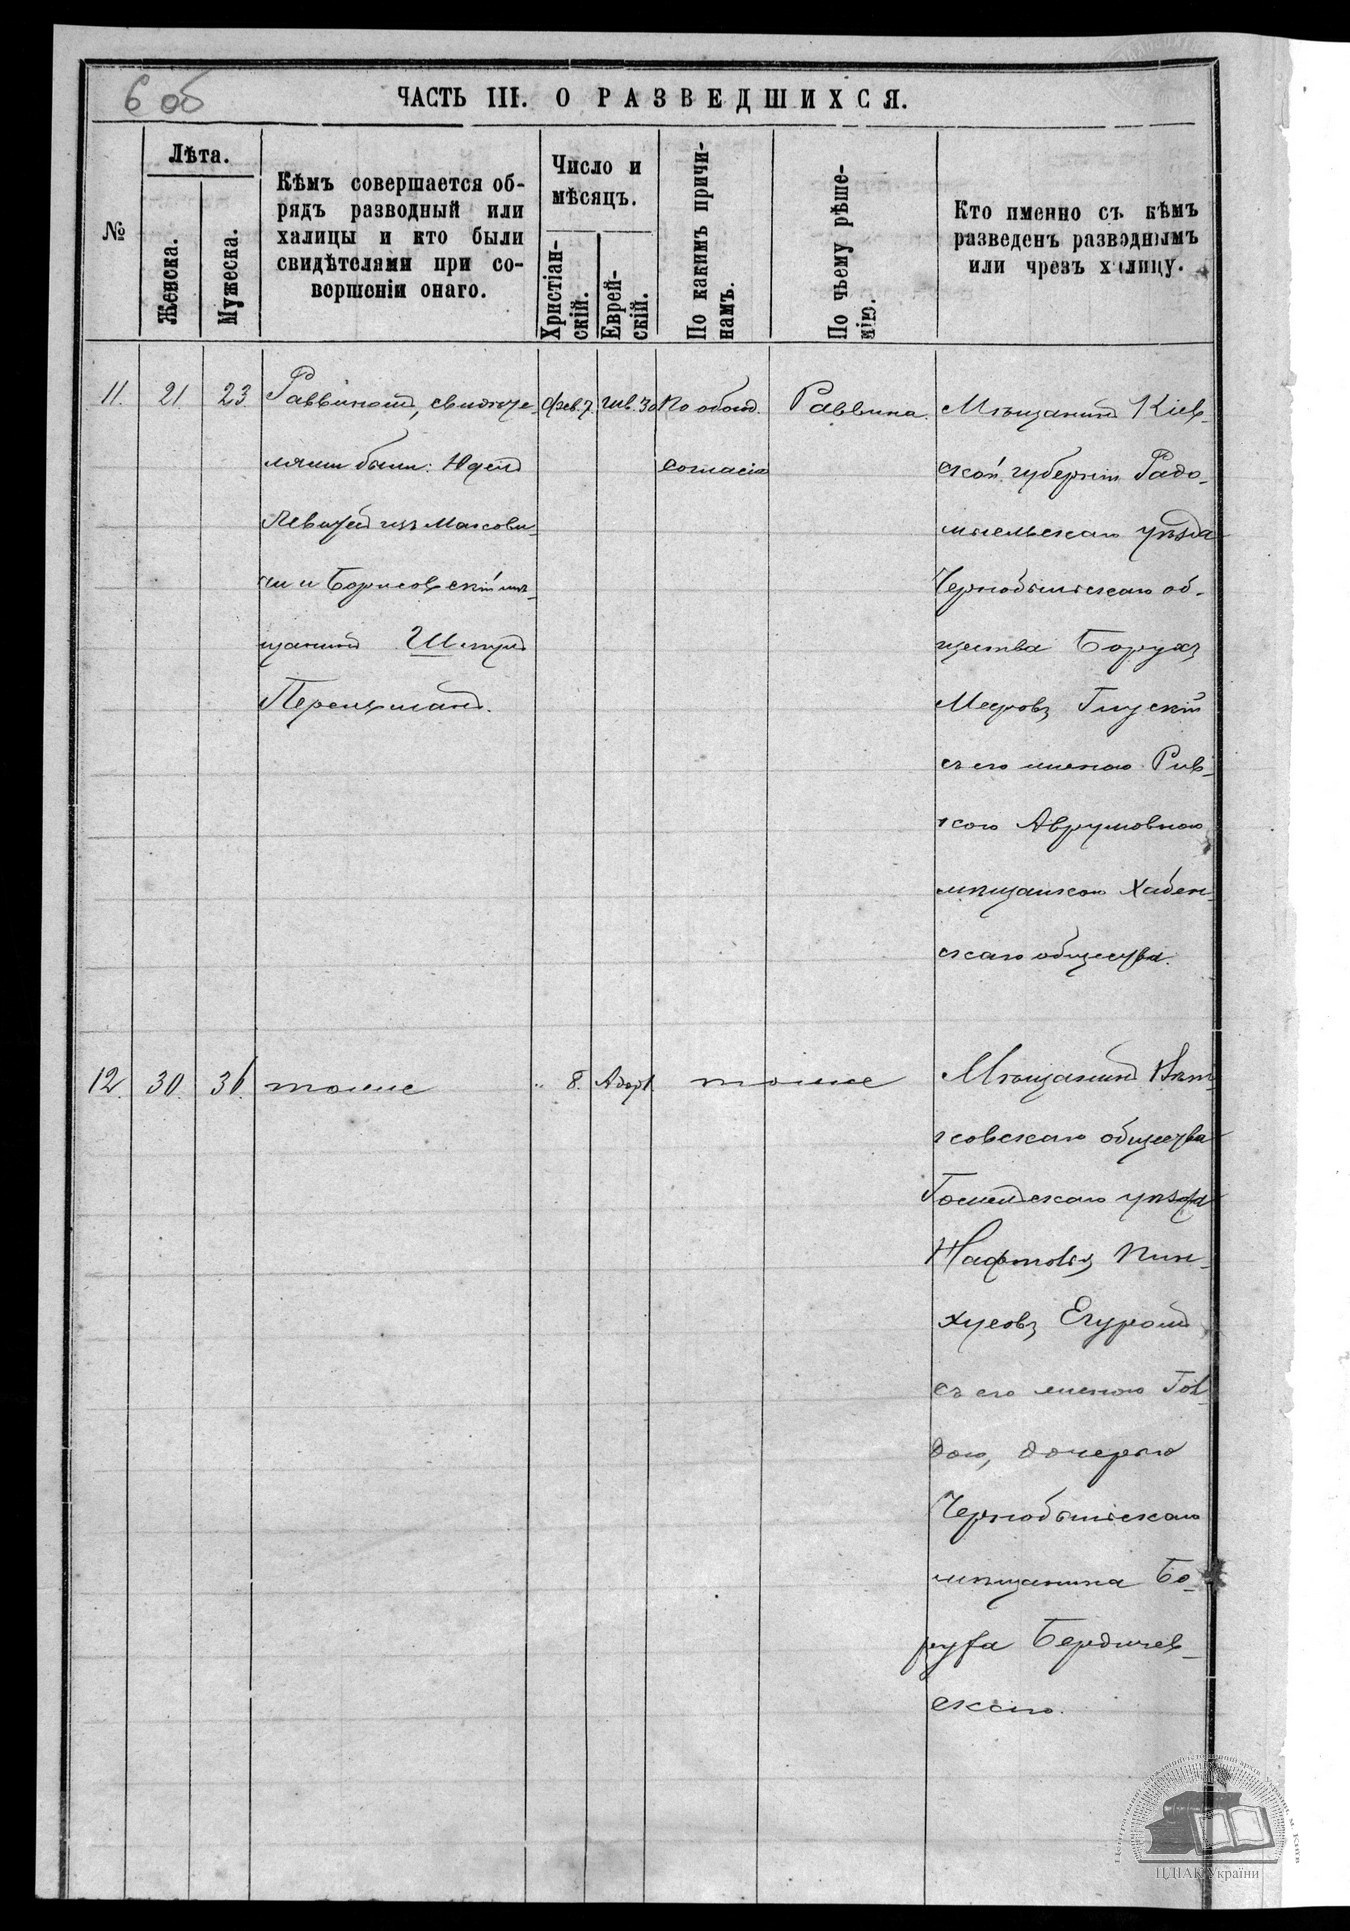 6 об
ЧАСТЬ III. О РАЗВЕДШИХСЯ.
№
Лѣта.
Женска.
Мужеска.
Кѣмъ совершается об-
рядъ разводный или
халицы и кто были
свидѣтелями при со-
вершеніи онаго.
Число и
мѣсяцъ.
Христіан-
скій.
Еврей-
скій.
По какимъ причи-
намъ.
По чьему рѣше-
нію.
Кто именно съ кѣмъ
разведенъ разводнымъ
или чрезъ халицу.
11.
21
23
Раввиномъ, свидѣте-
лями были: Юдель
изъ
и Борисовскій мѣ-
щанинъ
Фев. 7.
Шв. 30
По обоюд.
согласію
Раввина.
Мѣщанинъ Кіев-
ской губерніи Радо-
мысльскаго уѣзда
Чернобыльскаго об-
щества Борухъ
Мееровъ Глускій
съ его женою Рив-
кою Аврумовною
мѣщанкою Хабен-
скаго общества.
12.
30.
36.
тоже
" 8.
Адар 1.
тоже
Мѣщанинъ Вѣт-
ковскаго общества
Гомельскаго уѣзда
Пин-
хусовъ
съ его женою Гол-
дою, дочерью
Чернобыльскаго
мѣщанина Бо-
руха Бердичев-
скаго.
ЦДІАК України